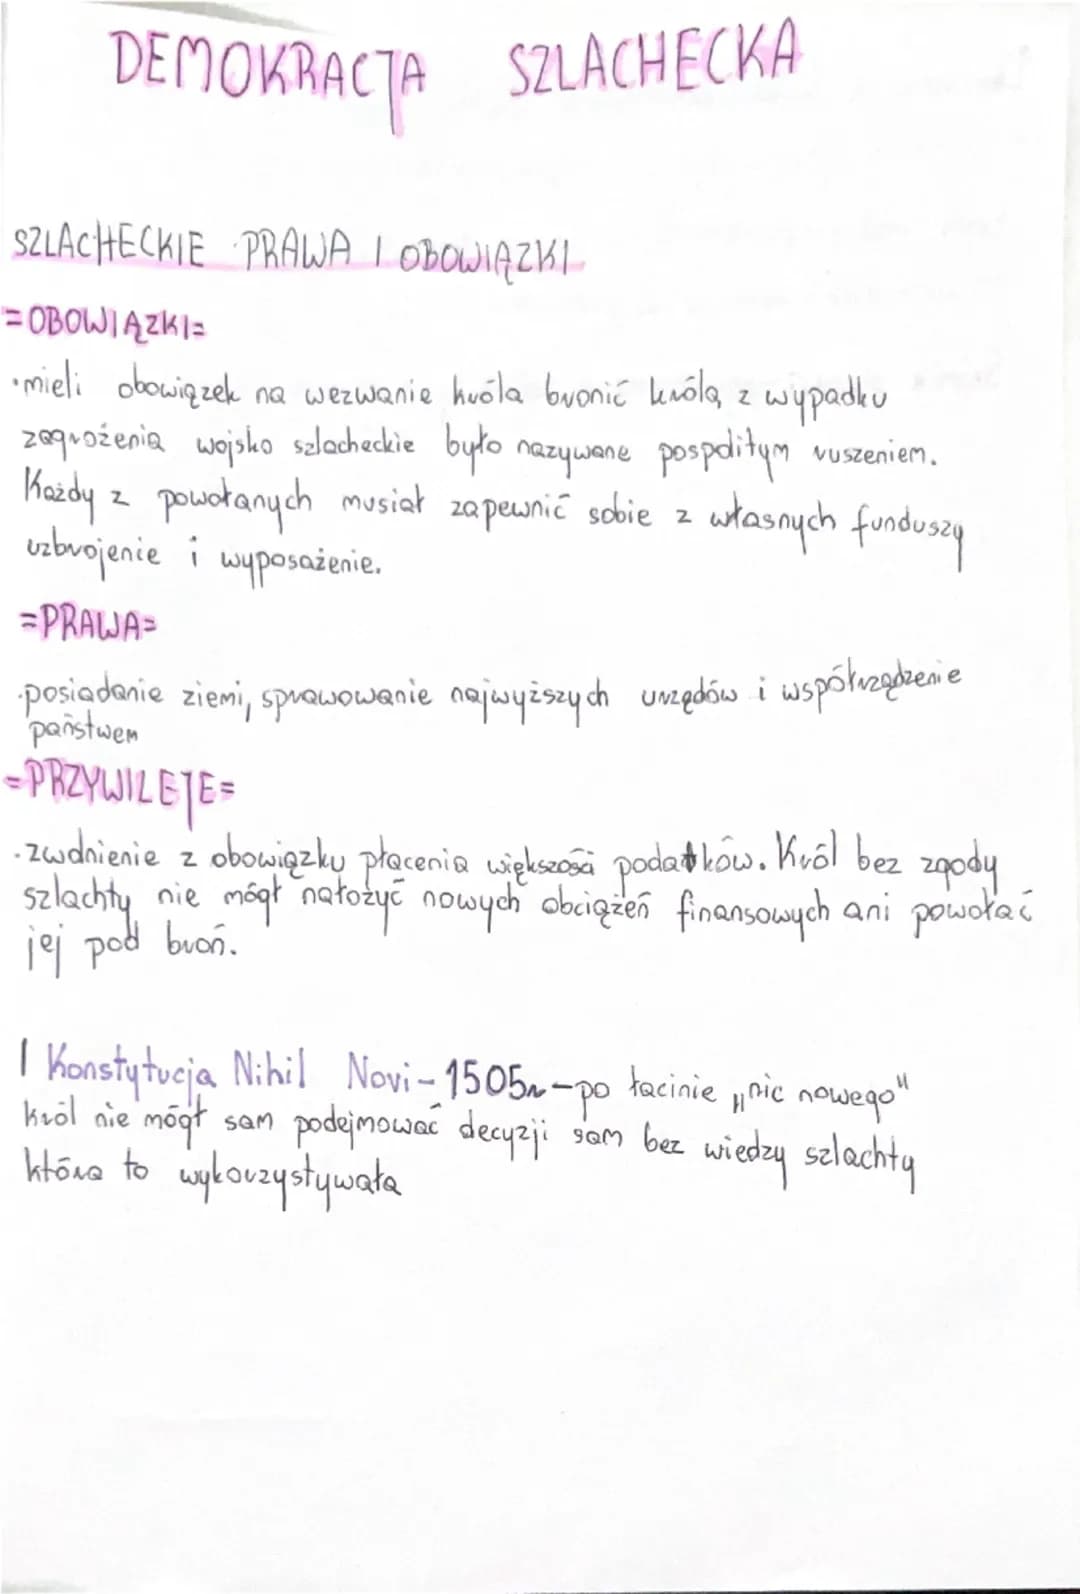 DEMOKRACJA SZLACHECKA
SZLACHECKIE PRAWA I OBOWIĄZKI
=OBOWIĄZKI=
•mieli obowiązek na wezwanie króla bronić króla, z wypadku
zagrożenia wojsko szlacheckie było nazywane pospolitym ruszeniem.
Każdy z powołanych musiał zapewnić sobie z własnych funduszy
uzbrojenie i wyposażenie.
=PRAWA=
•posiadanie ziemi, sprawowanie najwyższych urzędów i współrządzenie
państwem
=PRZYWILEJE=
•zwolnienie z obowiązku płacenia większości podatków. Król bez zgody
szlachty nie mógł nałożyć nowych obciążeń finansowych ani powołać
jej pod broń.
| Konstytucja Nihil Novi - 1505r - po łacinie „nic nowego"
król nie mógł sam podejmować decyzji sam bez wiedzy szlachty
która to wykorzystywała